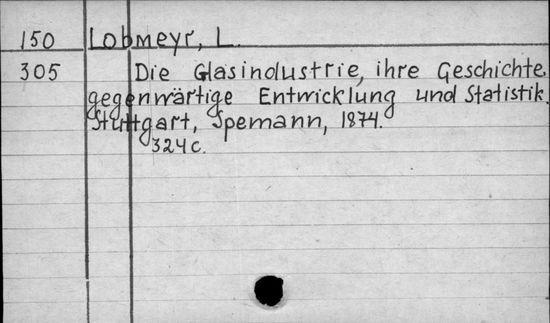 150 Lobmeyr, L.
305 Die Glasindustrie, ihre Geschichte,
gegenwärtige Entwicklung und Statistik.
Stuttgart, Spemann, 1874.
324 c.